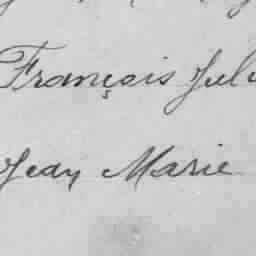 François Jul
Jean Marie